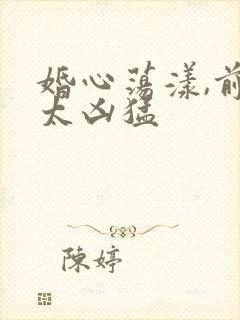 婚心荡漾,前
太凶猛
陳婷